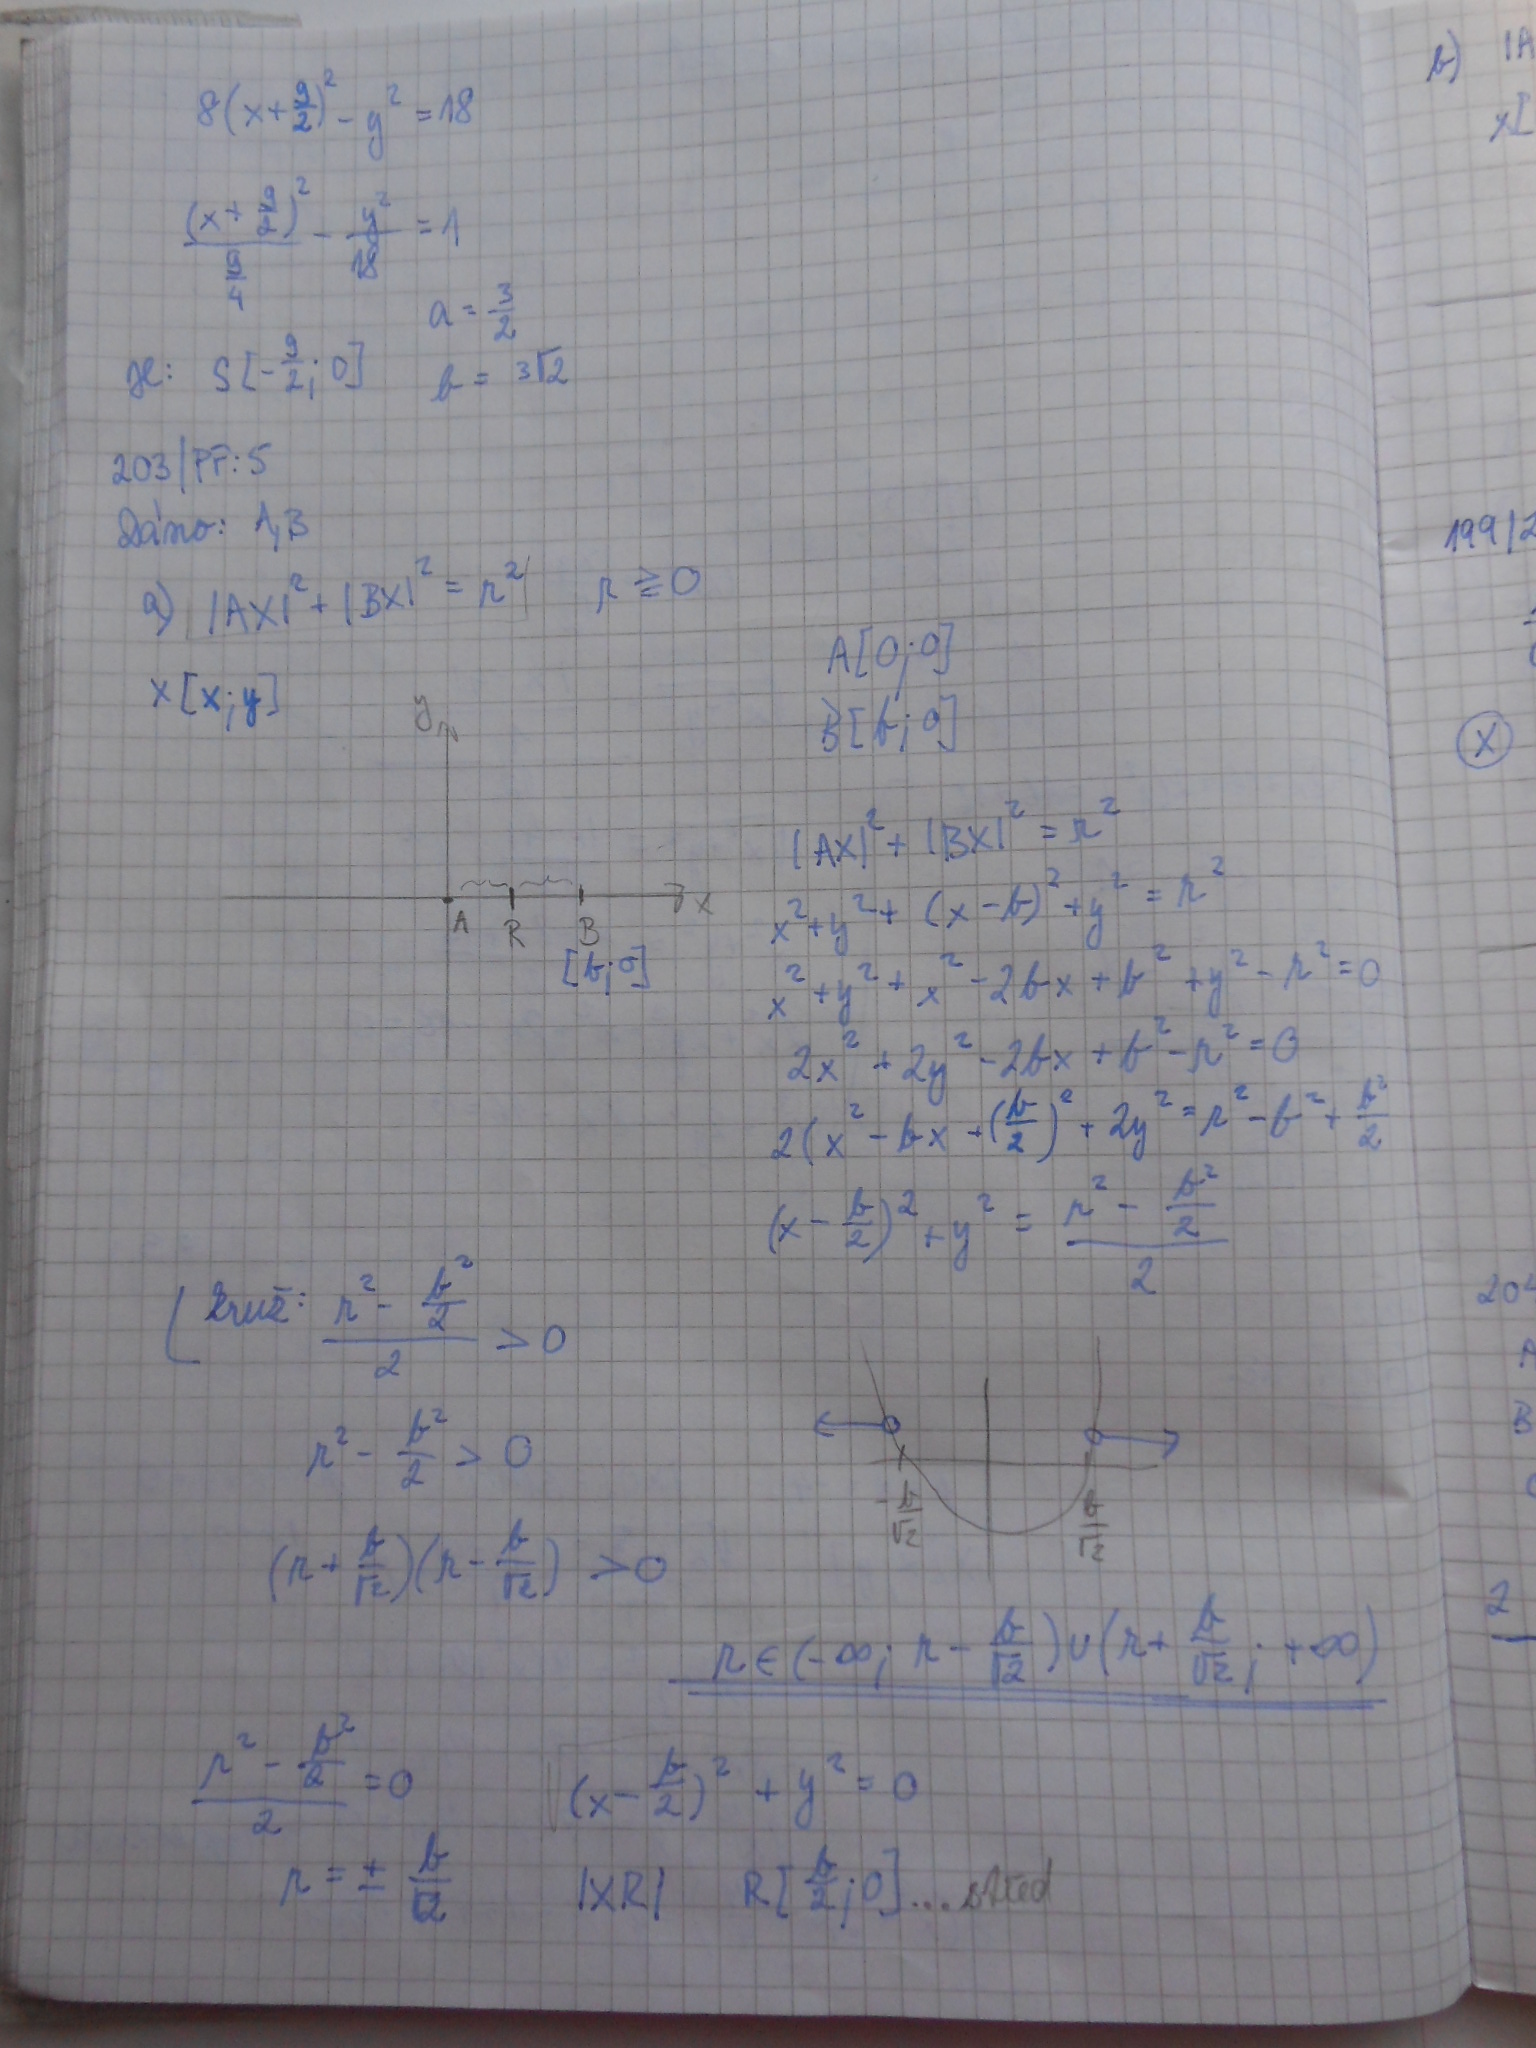 8(x+9/2)² - y² = 18
(x+9/2)²/(9/4) - y²/18 = 1
a = 3/2
H: S[-9/2; 0] b = 3√2
203/PŘ: 5
Dáno: A, B
a) |AX|² + |BX|² = r² r ≥ 0
A[0; 0]
X[x; y]
B[b; 0]
y
|AX|² + |BX|² = r²
x
A R B
[b; 0]
x² + y² + (x - b)² + y² = r²
x² + y² + x² - 2bx + b² + y² - r² = 0
2x² + 2y² - 2bx + b² - r² = 0
2(x² - bx + (b/2)² + 2y² = r² - b² + b²/2
(x - b/2)² + y² = (r² - b²/2)/2
Kruž: (r² - b²/2)/2 > 0
r² - b²/2 > 0
-b/√2 b/√2
(r + b/√2)(r - b/√2) > 0
r ∈ (-∞; r - b/√2) ∪ (r + b/√2; +∞)
(r² - b²/2)/2 = 0 (x - b/2)² + y² = 0
r = ± b/√2 |XR| R[b/2; 0] ... střed
b) |A
X[
199/2
X
204
A
B
2